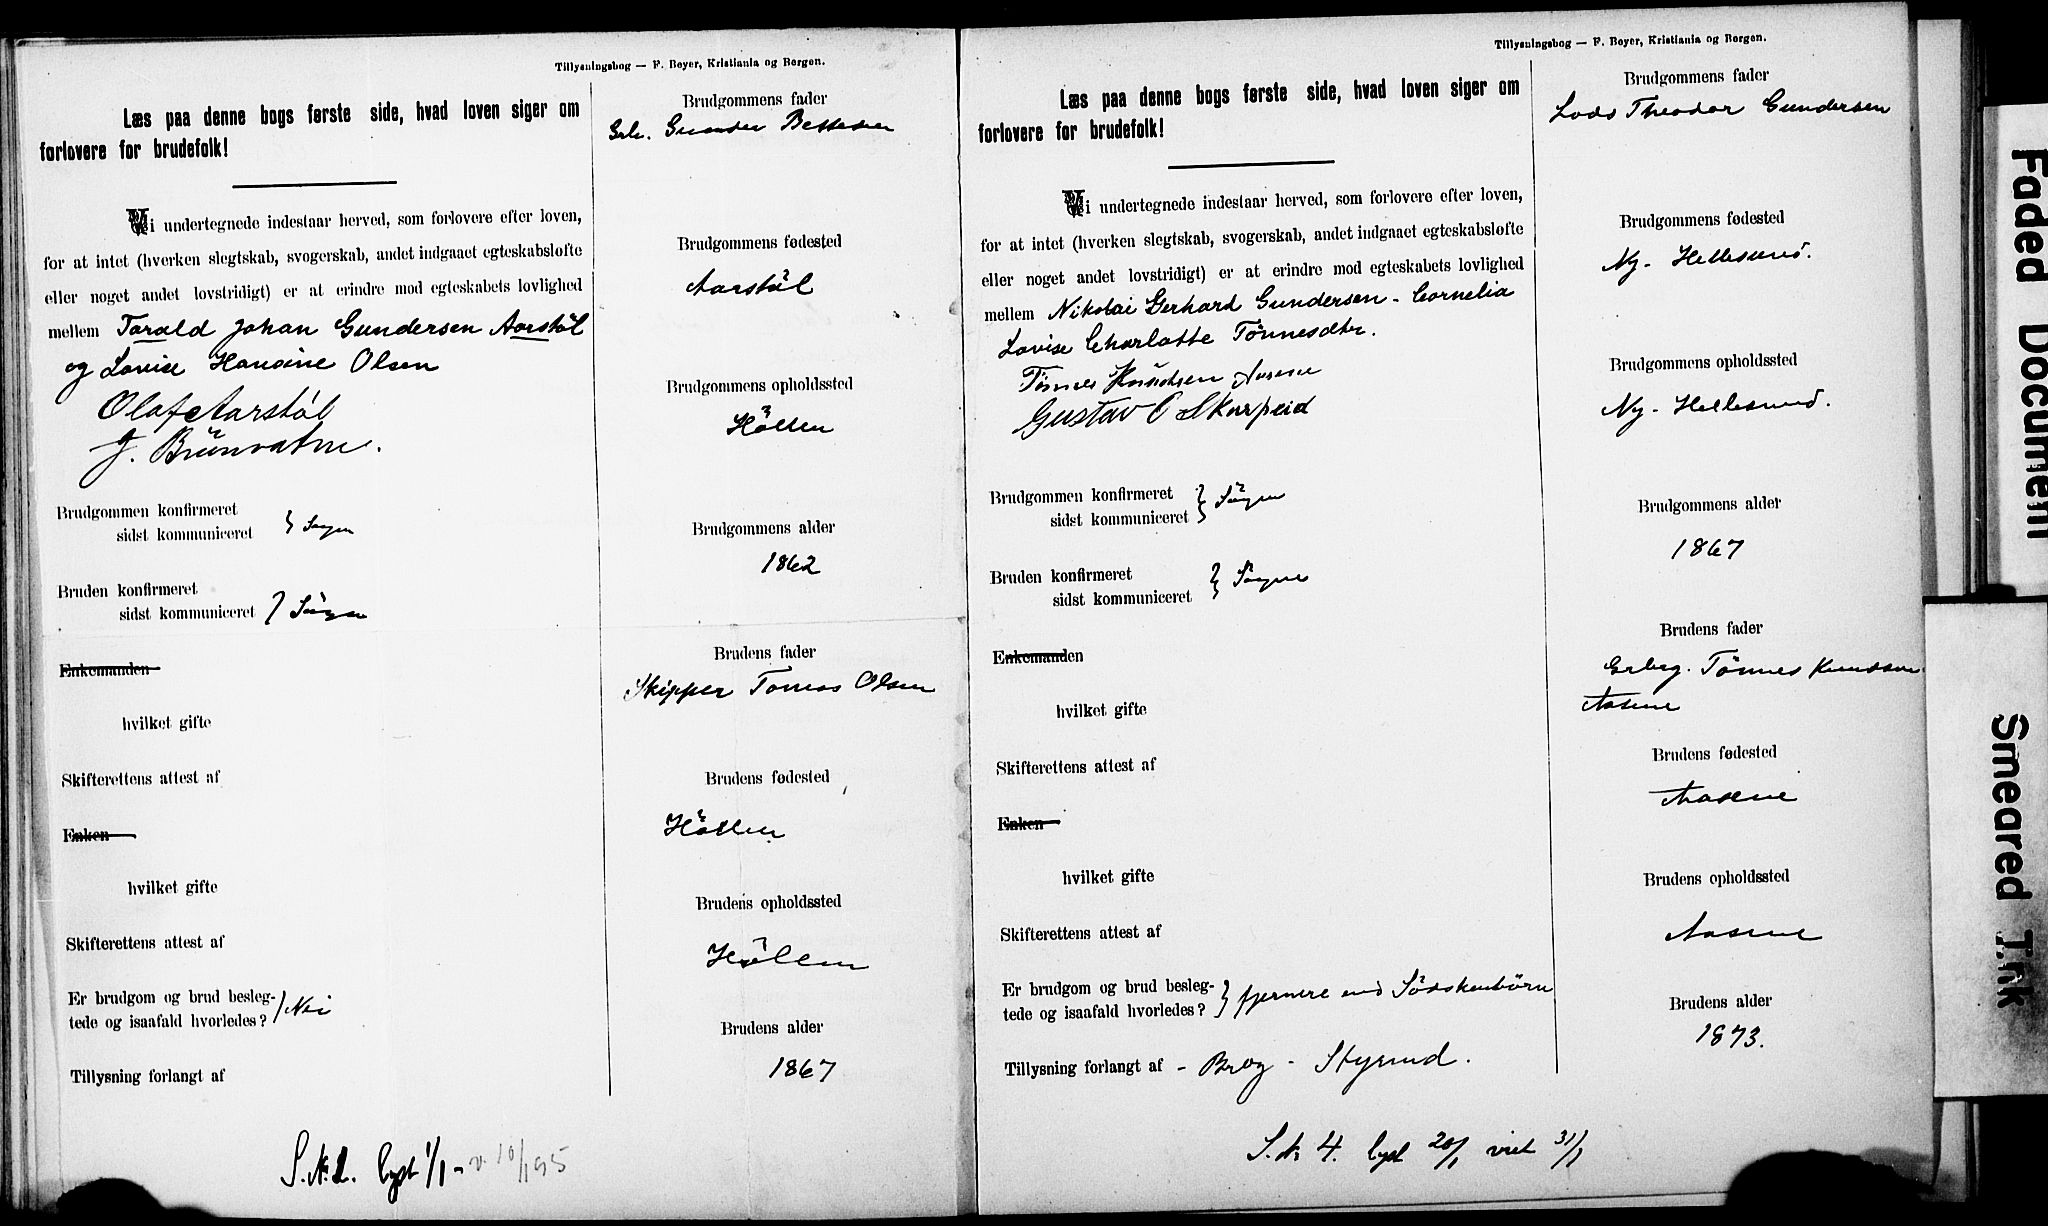 Tillysningsbog — F. Beyer, Kristiania og Bergen.
Læs paa denne bogs første side, hvad loven siger om
forlovere for brudefolk!
Vi undertegnede indestaar herved, som forlovere efter loven,
for at intet (hverken slegtskab, svogerskab, andet indgaaet egteskabsløfte
eller noget andet lovstridigt) er at erindre mod egteskabets lovlighed
mellem Tarald Johan Gundersen Aarstøl
og Lovise Hansine Olsen
Olaf Aarstøl
J. Brünvatne.
Brudgommen konfirmeret
sidst kommuniceret } Søgne
Bruden konfirmeret
sidst kommuniceret } Søgne
Enkemanden
hvilket gifte
Skifterettens attest af
Enken
hvilket gifte
Skifterettens attest af
Er brudgom og brud besleg-
tede og isaafald hvorledes? } Nei
Tillysning forlangt af
S. N. 2. lyst 1/1 - v. 10/1 95
Brudgommens fader
Gunder
Brudgommens fødested
Aarstøl
Brudgommens opholdssted
Høllen
Brudgommens alder
1862
Brudens fader
Skipper Tomas Olsen
Brudens fødested
Høllen
Brudens opholdssted
Høllen
Brudens alder
1867
Tillysningsbog — F. Beyer, Kristiania og Bergen.
Læs paa denne bogs første side, hvad loven siger om
forlovere for brudefolk!
Vi undertegnede indestaar herved, som forlovere efter loven,
for at intet (hverken slegtskab, svogerskab, andet indgaaet egteskabsløfte
eller noget andet lovstridigt) er at erindre mod egteskabets lovlighed
mellem Nikolai Gerhard Gundersen - Cornelia
Lovise Charlotte Tønnesdtr.
Tønnes Knudsen Aasene
Gustav O Skarpeid
Brudgommen konfirmeret
sidst kommuniceret } Søgne
Bruden konfirmeret
sidst kommuniceret } Søgne
Enkemanden
hvilket gifte
Skifterettens attest af
Enken
hvilket gifte
Skifterettens attest af
Er brudgom og brud besleg-
tede og isaafald hvorledes? } fjernere end Sødskenbørn
Tillysning forlangt af - Brog - Styrund.
S. N 4. lyst 20/1 viet 31/1
Brudgommens fader
Lods Theodor Gundersen
Brudgommens fødested
Ny-Hellesund.
Brudgommens opholdssted
Ny-Hellesund.
Brudgommens alder
1867
Brudens fader
Grbrg. Tønnes Knudsen
Aasene
Brudens fødested
Aasene
Brudens opholdssted
Aasene
Brudens alder
1873.
Faded Document
Smeared Ink